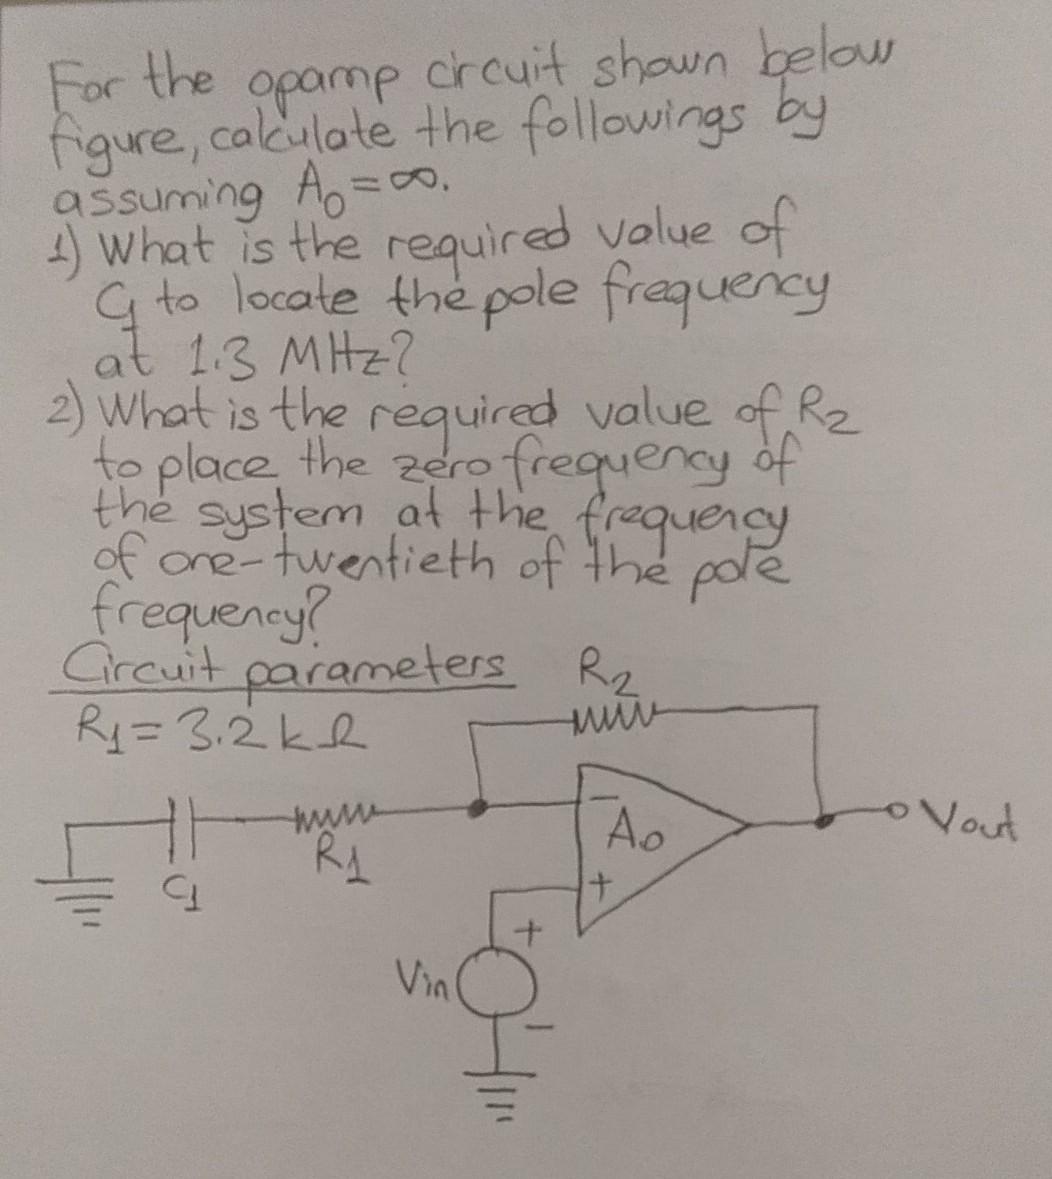 For the opamp circuit shown below
figure, calculate the followings by
assuming A₀=∞.
1) What is the required value of
C₁ to locate the pole frequency
at 1.3 MHz?
2) What is the required value of R₂
to place the zero frequency of
the system at the frequency
of one-twentieth of the pole
frequency?
Circuit parameters
R₁ = 3.2 kΩ
R₂
C₁
R₁
−
A₀
+
Vout
Vin
+
−